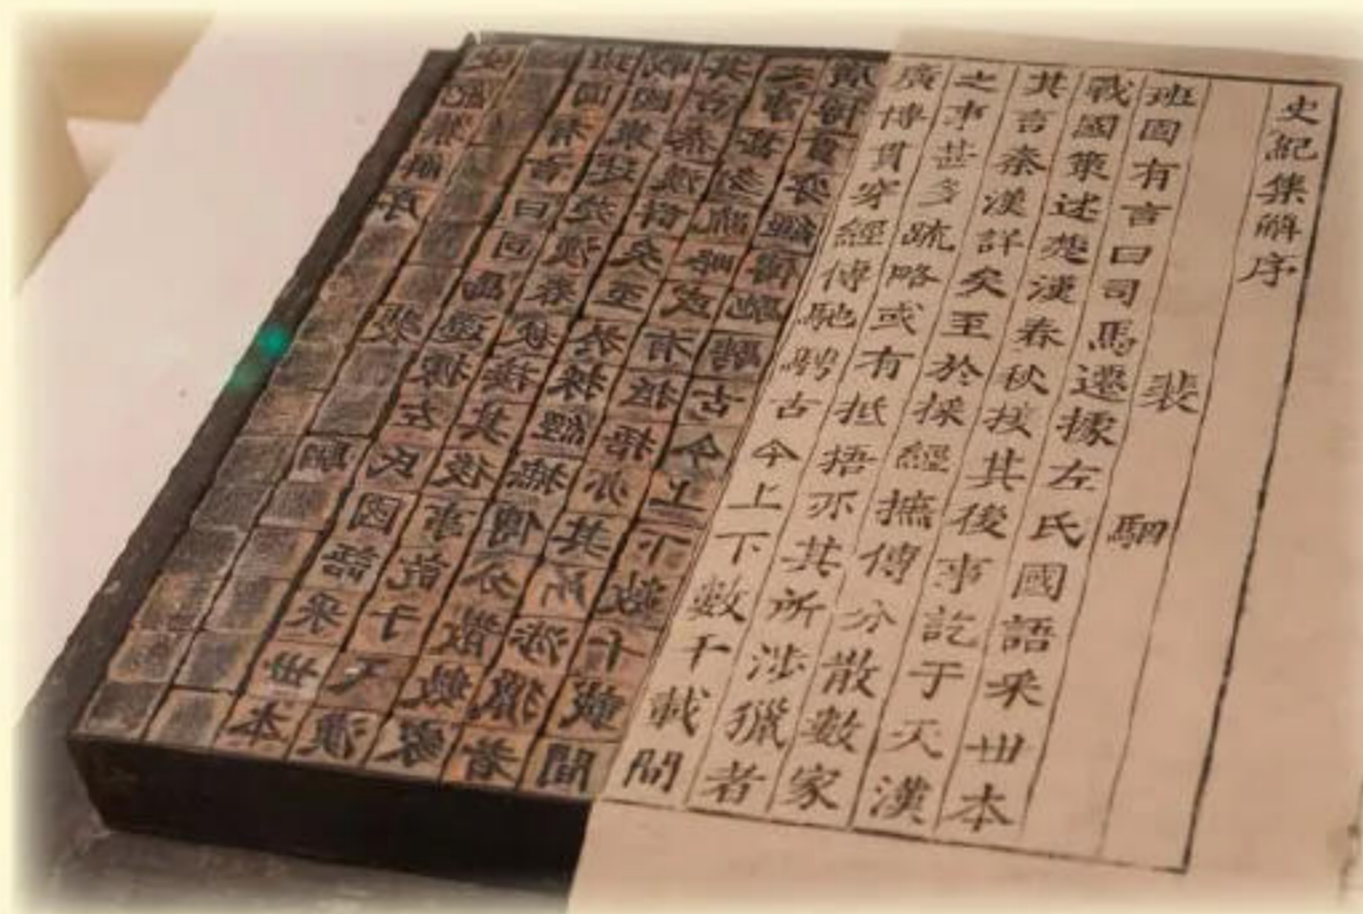 史紀集解序
裴駰
班固有言曰司馬遷據左氏國語采丗本
戰國策述楚漢春秋接其後事訖于天漢
其言秦漢詳矣至於採經摭傳分散數家
之事甚多疏略或有抵捂亦其所涉獵者
廣博貫穿經傳馳騁古今上下數千載間